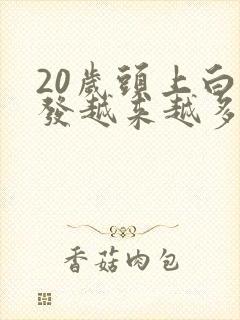 20歲頭上白
發越來越多
香菇肉包